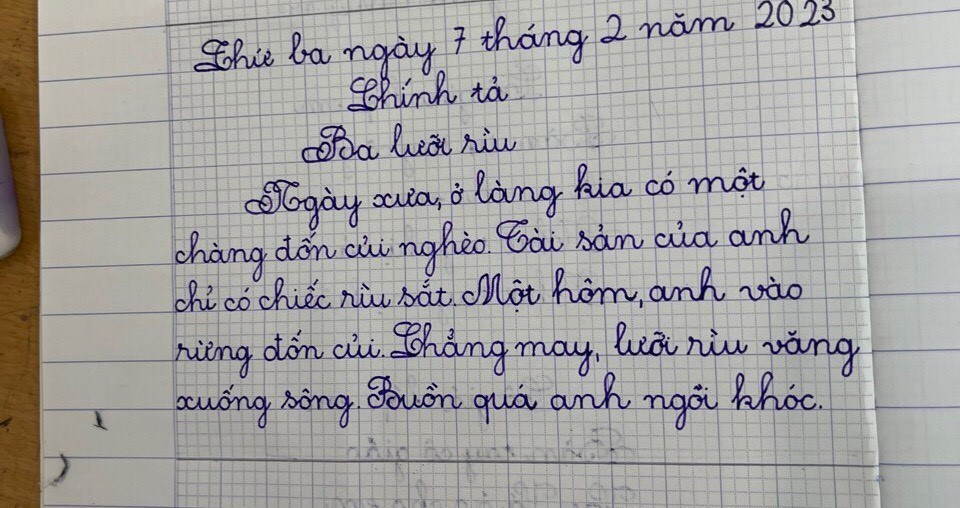 Thứ ba ngày 7 tháng 2 năm 2023
Chính tả
Ba lưỡi rìu
Ngày xưa, ở làng kia có một
chàng đốn củi nghèo. Tài sản của anh
chỉ có chiếc rìu sắt. Một hôm, anh vào
rừng đốn củi. Chẳng may, lưỡi rìu văng
xuống sông. Buồn quá anh ngồi khóc.